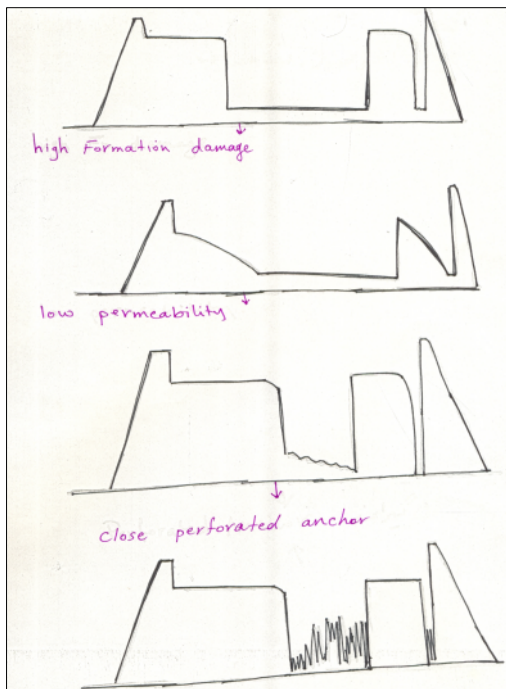 high Formation damage
low permeability
close perforated anchor